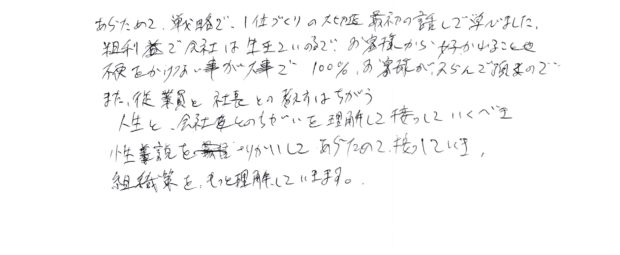 あらためて、戦略で、1位づくりの大切さ 最初の話しで学びました。
粗利益で会社は生きているので、お客様から好かれること
をかけない事が大事で 100%、お客様がえらんで頂ますので
また、従業員と社長との教え方はちがう
人生と、会社とのちがいを理解して接っしていくべき
性善説を りかいして あらためて、接っしていき、
組織策を、もっと理解していきます。